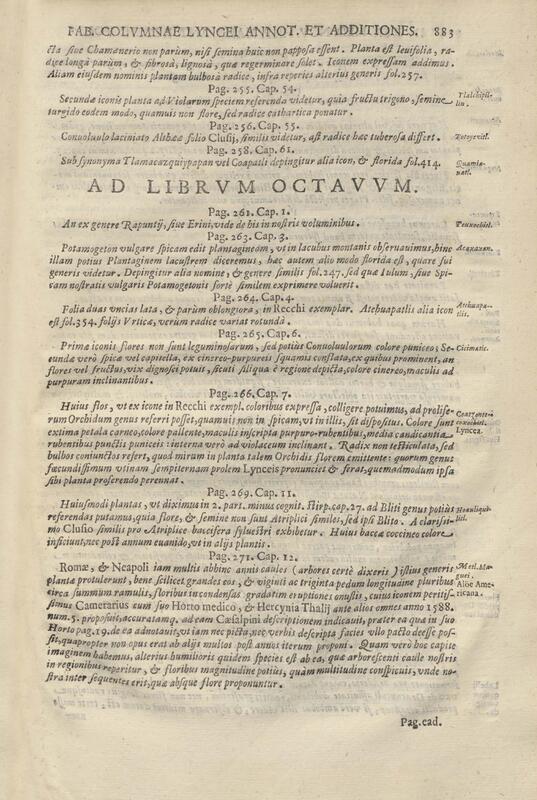 FAB. COLVMNAE LYNCEI ANNOT. ET ADDITIONES. 883
cta siue Chamænerio non parùm, nisi semina huic non papposa essent. Planta est leuifolia, ra-
dice longà parùm, & fibrosà, lignosà, quæ regerminare solet. Iconem expressam addimus.
Aliam eiusdem nominis plantam bulbosà radice, infra reperies alterius generis fol.257.
Pag. 255. Cap. 54.
Secundæ iconis planta ad Violarum speciem referenda videtur, quia fructu trigono, semine
turgido eodem modo, quamuis non flore, sed radice cathartica ponatur.
Pag. 256. Cap. 55.
Conuoluulo laciniato Altheæ folio Clusij, similis videtur, ast radice hæc tuberosa differt.
Pag. 258. Cap. 61.
Sub synonyma Tlamacazquiypapan vel Coapatli depingitur alia icon, & florida fol.414.
AD LIBRVM OCTAVVM.
Pag. 261. Cap. 1.
An ex genere Rapuntij, siue Erini, vide de his in nostris voluminibus.
Pag. 263. Cap. 3.
Potamogeton vulgare spicam edit plantagineam, vt in lacubus montanis obseruauimus, hinc
illam potius Plantaginem lacustrem diceremus, hæc autem alio modo florida est, quare sui
generis videtur. Depingitur alia nomine, & genere similis fol.247. sed quæ Iulum, siue Spi-
cam nostratis vulgaris Potamogetonis fortè similem exprimere voluerit.
Pag. 264. Cap. 4.
Folia duas vncias lata, & parùm oblongiora, in Recchi exemplar. Atehuapatlis alia icon
est fol.354. folijs Vrticæ, verùm radice variat rotundà.
Pag. 265. Cap. 6.
Primæ iconis flores non sunt leguminosarum, sed potius Conuoluulorum colore puniceo; Se-
cundæ verò spicæ vel capitella, ex cinereo-purpureis squamis constata, ex quibus prominent, an
flores vel fructus, vix dignosci potuit, sicuti siliqua è regione depicta, colore cinereo, maculis ad
purpuram inclinantibus.
Pag. 266. Cap. 7.
Huius flos, vt ex icone in Recchi exempl. coloribus expressa, colligere potuimus, ad prolife-
rum Orchidum genus referri posset, quamuis non in spicam, vt in illis, sit dispositus. Colore sunt
extima petala carneo, colore pallente, maculis inscripta purpuro-rubentibus, media candicantia
rubentibus punctis puniceis: interna verò ad violaceum inclinant. Radix non testiculata, sed
bulbos coniunctos refert, quod mirum in planta talem Orchidis florem emittente: quorum genus
fœcundissimum vtinam sempiternam prolem Lynceis pronunciet & ferat, quemadmodum ipsa
sibi planta proferendo perennat.
Pag. 269. Cap. 11.
Huiusmodi plantas, vt diximus in 2. part. minus cognit. stirp. cap. 27. ad Bliti genus potiùs
referendas putamus, quia flore, & semine non sunt Atriplici similes, sed ipsi Blito. A clarissi-
mo Clusio similis pro Atriplice baccifera syluestri exhibetur. Huius baccæ coccineo colore
inficiunt, nec post annum euanido, vt in alijs plantis.
Pag. 271. Cap. 12.
Romæ, & Neapoli iam multis abhinc annis caules (arbores certè dixeris) istius generis
plantæ protulerunt, bene scilicet grandes eos, & viginti ac triginta pedum longitudine pluribus
circa summum ramulis, floribus in condensas gradatim eruptiones onustis, cuius iconem peritis-
simus Camerarius cum suo Horto medico, & Hercynia Thalij ante alios omnes anno 1588.
num. 5. proposuit, accuratamq. ad eam Cæsalpini descriptionem indicauit, præter ea quæ in suo
Horto pag. 19. de ea adnotauit, vt iam nec picta, nec verbis descripta facies vllo pacto deesse pos-
sit, quapropter non opus erat ab alijs multos post annos iterum proponi. Quam verò hoc capite
imaginem habemus, alterius humilioris quidem species est ab ea, quæ arborescenti caule nostris
in regionibus reperitur, & floribus magnitudine potiùs, quàm multitudine conspicuis, vnde no-
stra inter sequentes erit, quæ absque flore proponuntur.
Pag. ead.
Acaxaxan.
Atehuapa-
tlis.
Cicimatic.
Lyncea.
Metl. Ma-
guei.
Aloë Ame-
ricana.